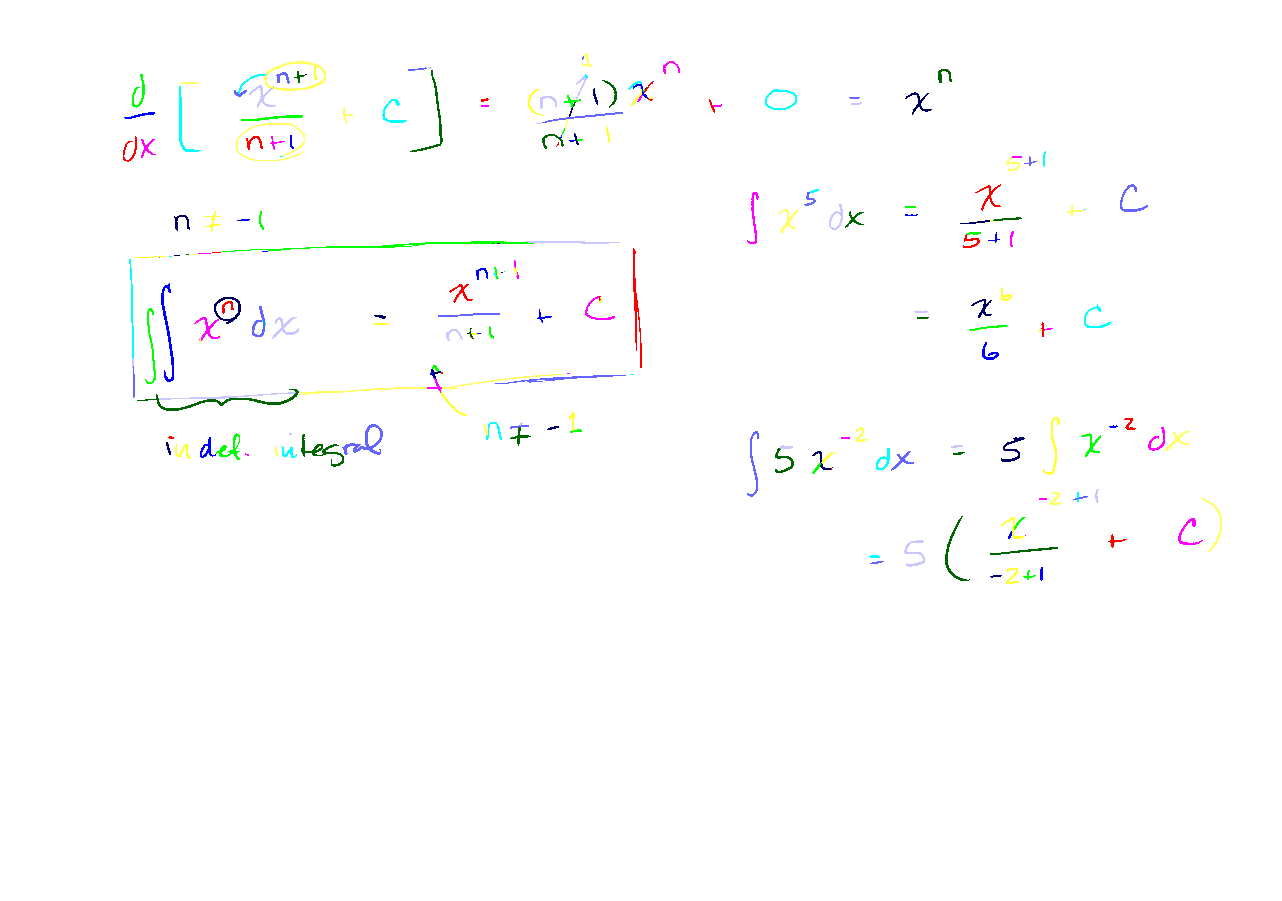 d/dx [ x^(n+1)/(n+1) + C ] = (n+1)x^n/(n+1) + 0 = x^n
n ≠ -1
∫∫ x^n dx = x^(n+1)/(n+1) + C
indef. integral
n ≠ -1
∫ x^5 dx = x^(5+1)/(5+1) + C
= x^6/6 + C
∫ 5 x^(-2) dx = 5 ∫ x^(-2) dx
= 5 ( x^(-2+1)/(-2+1) + C )